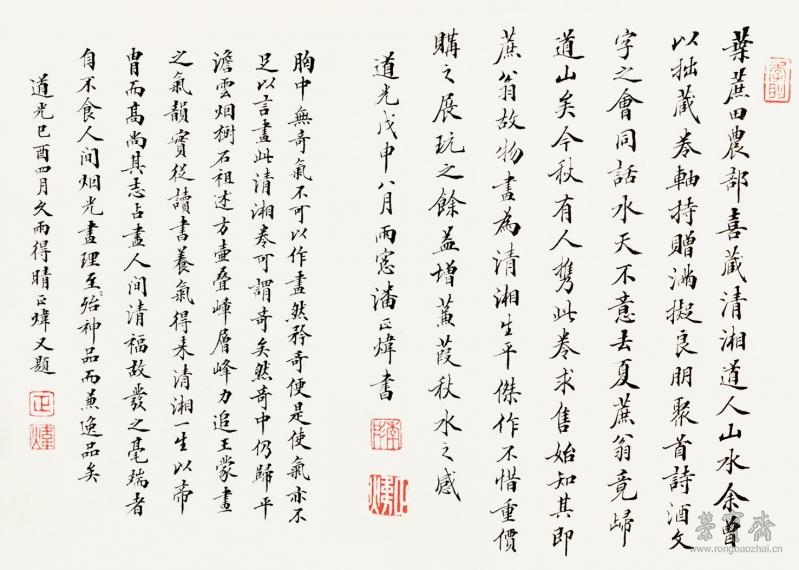 葉蔗田農部喜藏清湘道人山水余曽
以拙藏卷軸持贈滿擬良朋聚首詩酒文
字之會同話水天不意去夏蔗翁竟歸
道山矣今秋有人携此卷求售始知其即
蔗翁故物畫為清湘生平傑作不惜重價
購之展玩之餘益增蒹葭秋水之感
道光戊申八月雨窓潘正煒書
胸中無奇氣不可以作畫然矜奇便是使氣亦不
足以言畫此清湘卷可謂奇矣然奇中仍歸平
澹雲烟樹石祖述方壷叠嶂層峰力追王蒙畫
之氣韻實從讀書養氣得来清湘一生以帝
胄而髙尚其志占盡人間清福故發之毫端者
自不食人间烟光畫理至殆神品而兼逸品矣
道光巳酉四月久雨得晴正煒又題
正煒
榮寳齋
www.rongbaozhai.cn